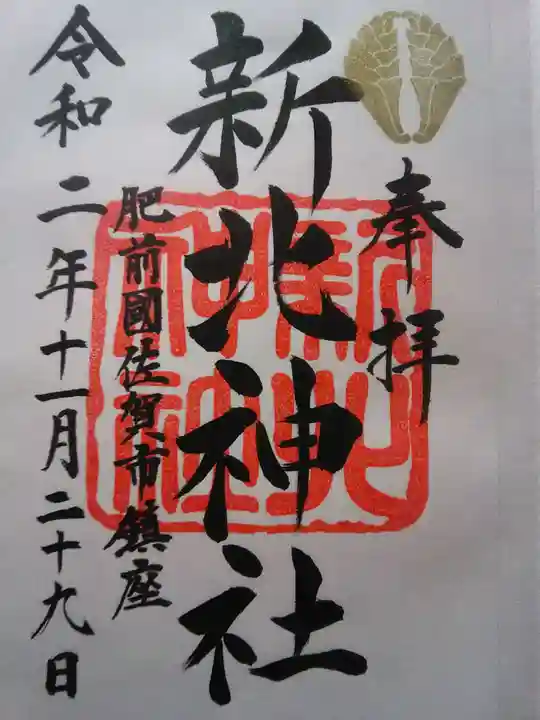 奉拝
新北神社
新北神社
肥前國佐賀市鎮座
令和二年十一月二十九日